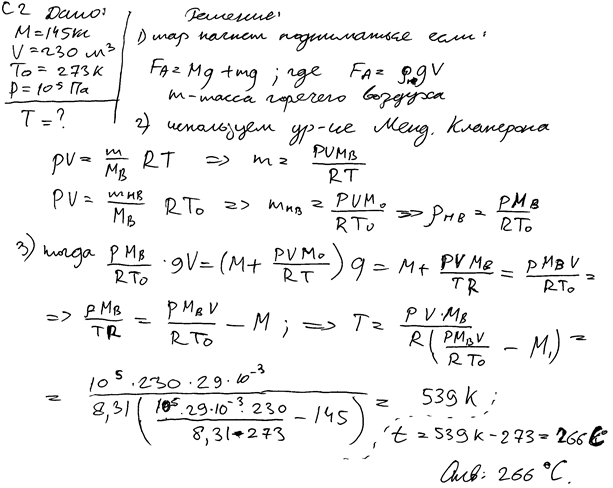 С2 Дано:
M = 145 кг
V = 230 м³
T₀ = 273 K
P = 10⁵ Па
T = ?
Решение:
1) шар начнет подниматься если:
F_A = Mg + mg ; где F_A = ρ_нв gV
m - масса горячего воздуха
2) используем ур-ие Менд. Клаперона
pV = m/M_B RT => m = PVM_B/RT
PV = m_нв/M_B RT₀ => m_нв = PVM₀/RT₀ => ρ_нв = PM_B/RT₀
3) тогда PM_B/RT₀ · gV = (M + PVM₀/RT) g = M + PVM_B/TR = PM_BV/RT₀ =
=> PM_B/TR = PM_BV/RT₀ - M ; => T = PV·M_B/R(PM_BV/RT₀ - M₁) =
= 10⁵·230·29·10⁻³/8,31(10⁵·29·10⁻³·230/8,31·273 - 145) = 539 K ;
t = 539K - 273 = 266 C
Отв: 266 °C.